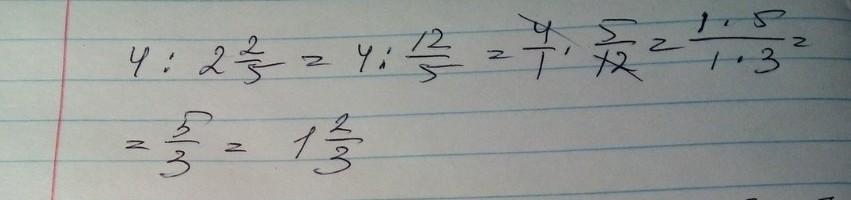 4 : 2 2/5 = 4 : 12/5 = 4/1 · 5/12 = 1 · 5/1 · 3 =
= 5/3 = 1 2/3